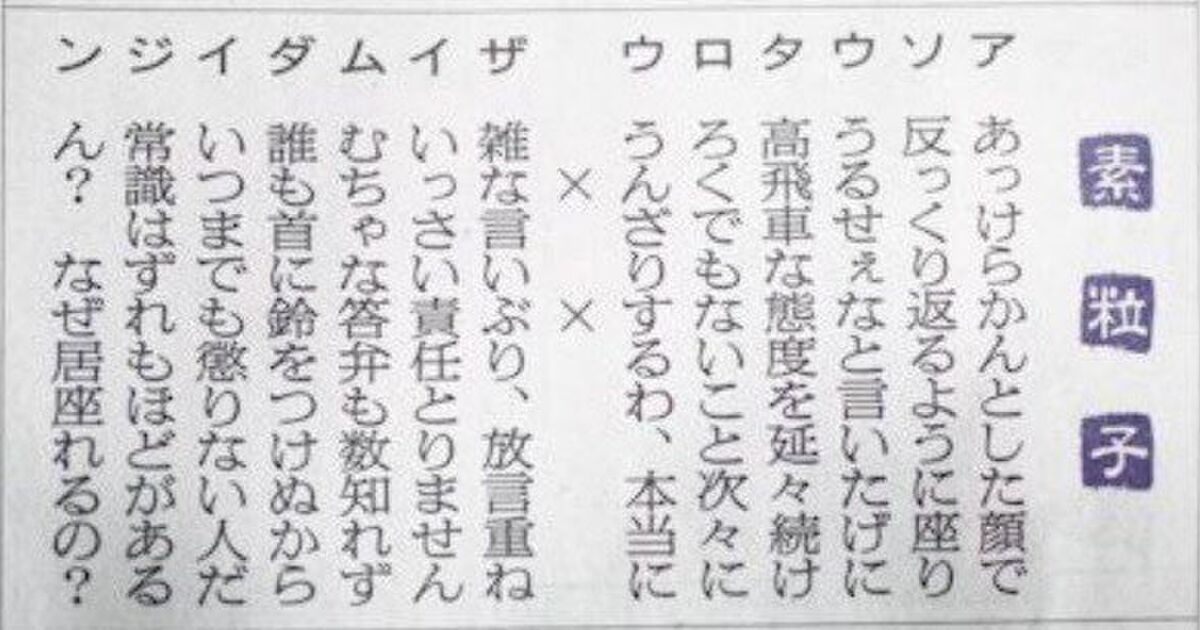 素粒子
ア あっけらかんとした顔で
ソ 反っくり返るように座り
ウ うるせぇなと言いたげに
タ 高飛車な態度を延々続け
ロ ろくでもないこと次々に
ウ うんざりするわ、本当に
× ×
ザ 雑な言いぶり、放言重ね
イ いっさい責任とりません
ム むちゃな答弁も数知れず
ダ 誰も首に鈴をつけぬから
イ いつまでも懲りない人だ
ジ 常識はずれもほどがある
ン ん? なぜ居座れるの?